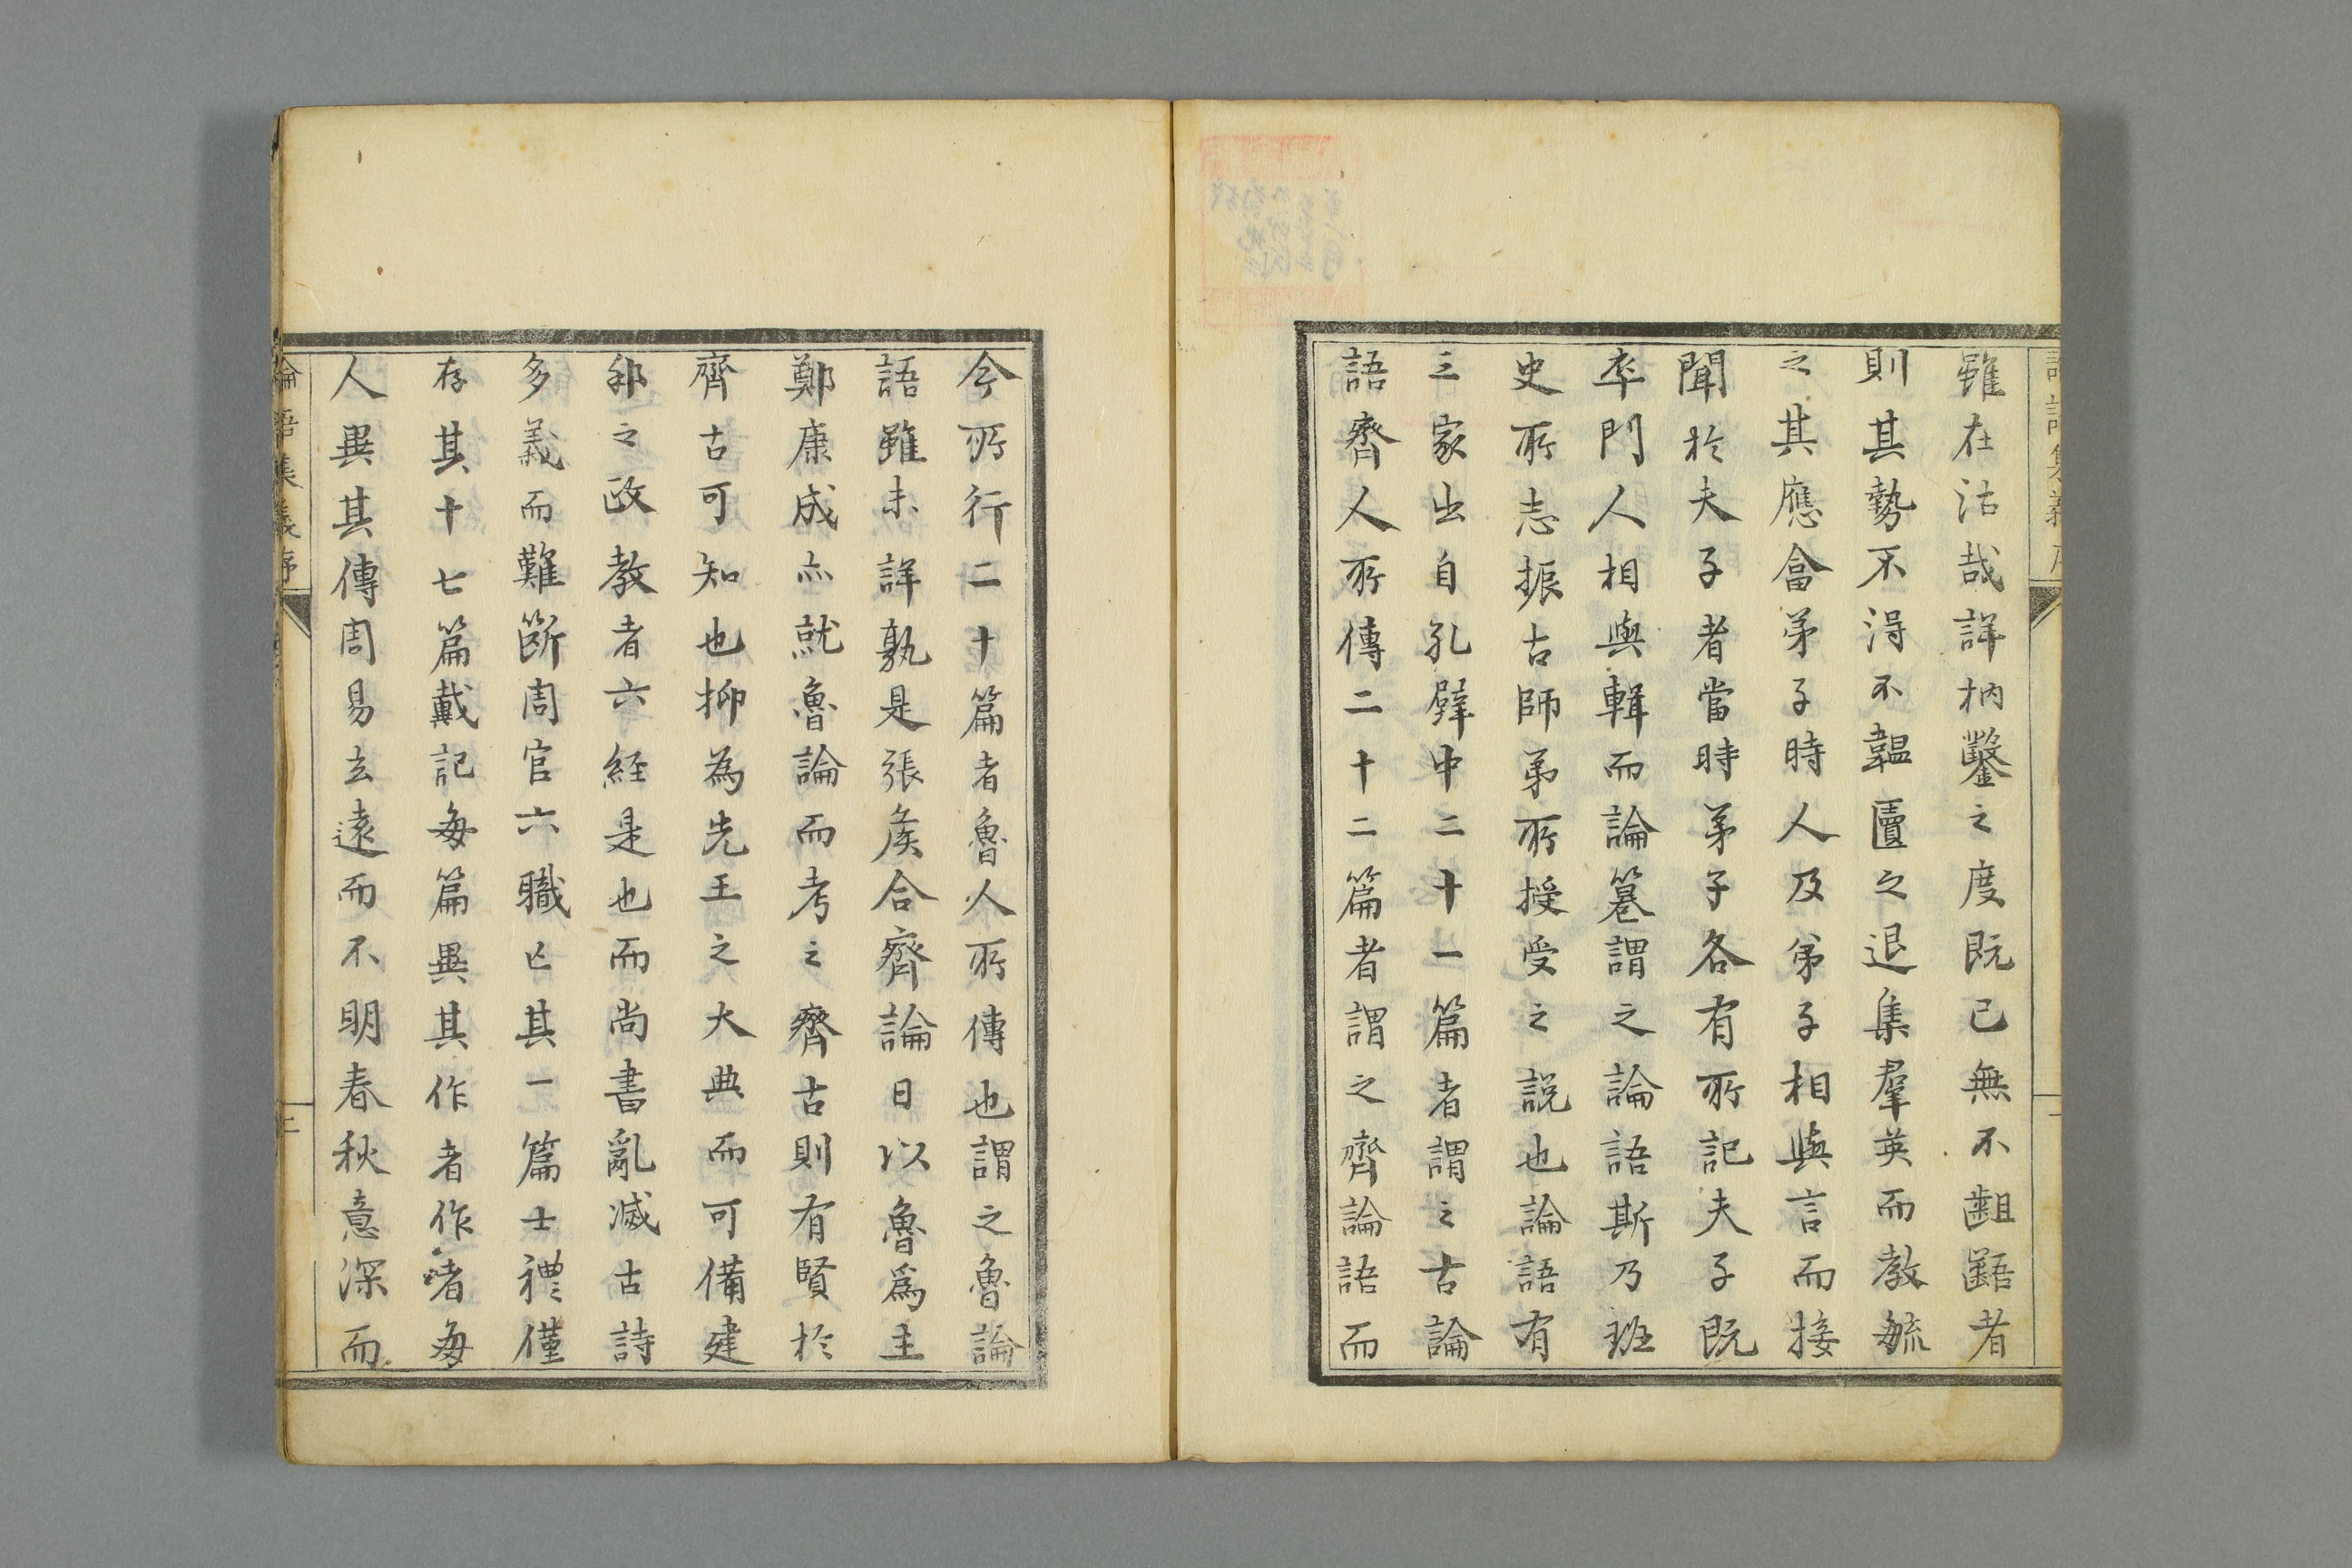 雖在沽哉詳枘鑿之度既已無不齟齬者
則其勢不得不韞匵之退集羣英而教毓
之其應畣弟子時人及弟子相與言而接
聞於夫子者當時弟子各有所記夫子既
卒門人相與輯而論篹謂之論語斯乃班
史所志振古師弟所授受之説也論語有
三家出自孔壁中二十一篇者謂之古論
語齊人所傳二十二篇者謂之齊論語而
今所行二十篇者魯人所傳也謂之魯論
語雖未詳孰是張矦合齊論曰以魯爲主
鄭康成亦就魯論而考之齊古則有賢於
齊古可知也抑為先王之大典而可備建
邦之政教者六経是也而尚書亂滅古詩
多義而難斷周官六職亡其一篇士禮僅
存其十七篇戴記每篇異其作者作者每
人異其傳周易玄遠而不明春秋意深而
論語集義序